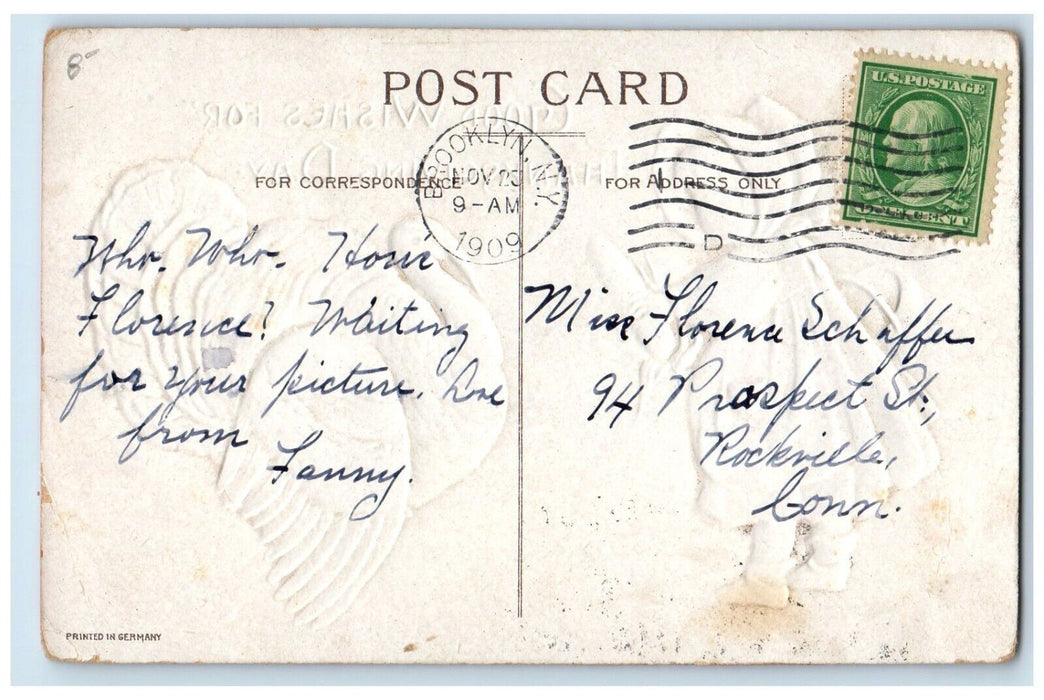 8-
POST CARD
GOOD WISHES FOR
THANKSGIVING DAY
FOR CORRESPONDENCE
FOR ADDRESS ONLY
BROOKLYN, N.Y.
NOV 23
9-AM
1909
D
U.S. POSTAGE
ONE CENT
Who. Who. How
Florence? Waiting
for your picture. Love
from
Fanny.
Miss Florence Schaffer
94 Prospect St.,
Rockville,
Conn.
PRINTED IN GERMANY